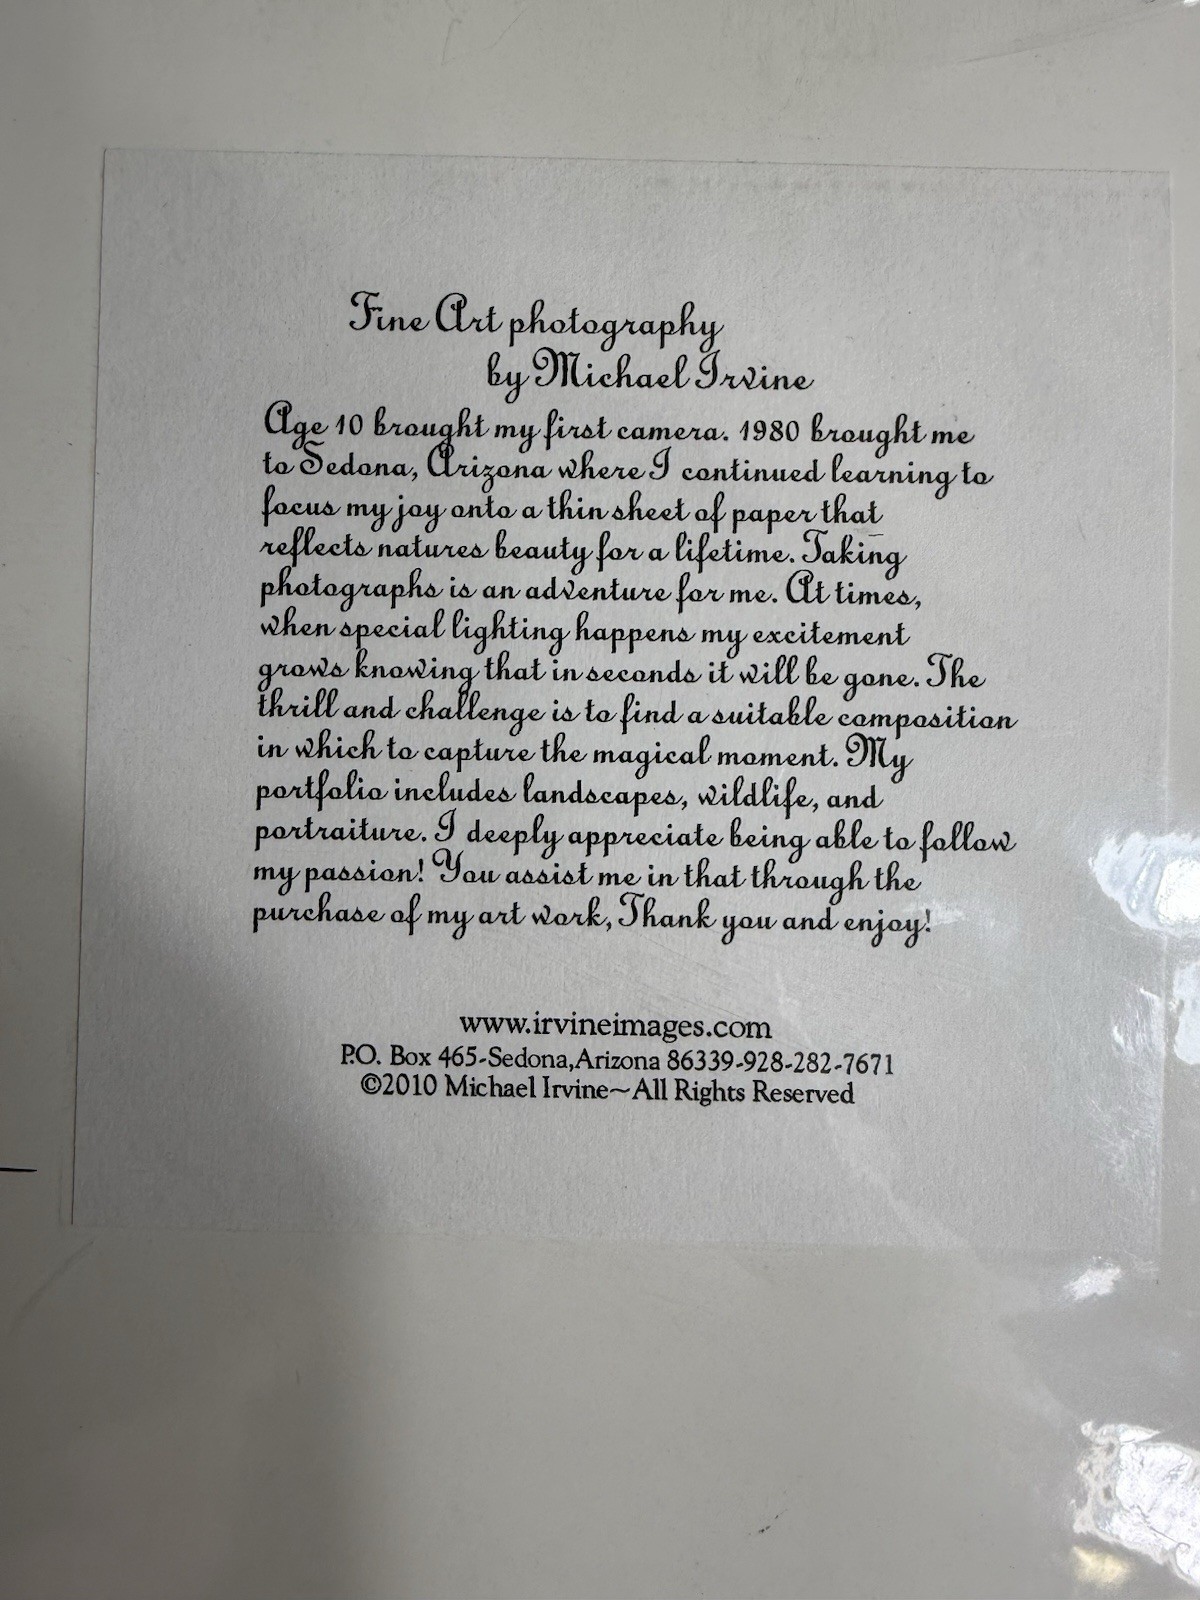 Fine Art photography
by Michael Irvine
Age 10 brought my first camera. 1980 brought me
to Sedona, Arizona where I continued learning to
focus my joy onto a thin sheet of paper that
reflects natures beauty for a lifetime. Taking
photographs is an adventure for me. At times,
when special lighting happens my excitement
grows knowing that in seconds it will be gone. The
thrill and challenge is to find a suitable composition
in which to capture the magical moment. My
portfolio includes landscapes, wildlife, and
portraiture. I deeply appreciate being able to follow
my passion! You assist me in that through the
purchase of my art work, Thank you and enjoy!
www.irvineimages.com
P.O. Box 465-Sedona,Arizona 86339-928-282-7671
©2010 Michael Irvine~All Rights Reserved